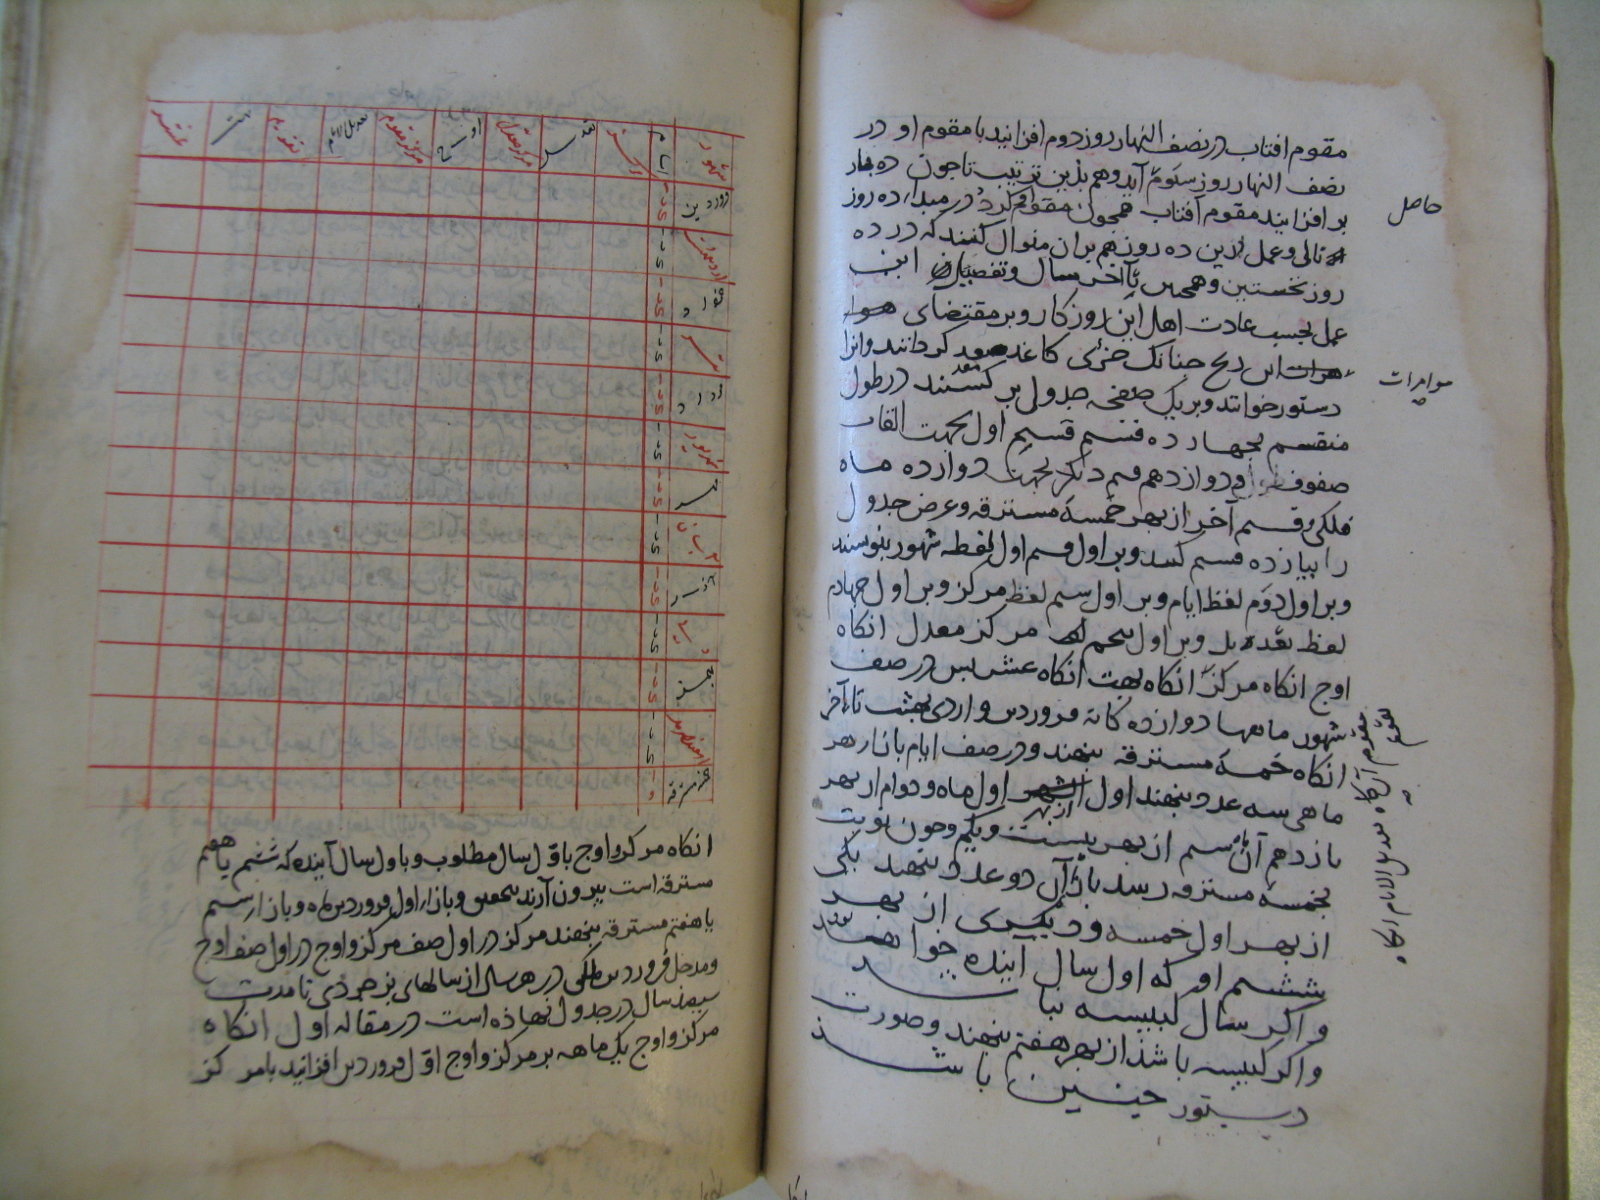 مقوم افتاب در نصف النهار روز دوم افزایند با مقوم او در
نصف النهار روز سوم آید و هم بدین ترتیب تا چون ده بار
بر افزایند مقوم آفتاب همچون مقوم کرد در مبداء ده روز
حاصل
تالی و عمل درین ده روز هم بران منوال کنند که در ده
روز نخستین و همچنین تا آخر سال و تفصیل این
عمل بحسب عادت اهل این روزکار و بر مقتضای
این زیج چنانک جزئی کاغذ کردانند و انرا
موامرات
دستور خوانند و بر یک صفحه جدول بر کشند در طول
منقسم بچهارده قسم قسم اول بجهت القاب
صفوف و دوازدهم قسم دیکر بجهت دوازده ماه
فلکی و قسم آخر از بهر خمسه مسترقه و عرض جدول
را بیازده قسم کنند و بر اول قسم اول لفظه شهور بنویسند
و بر اول دوم لفظ ایام و بر اول سیم لفظ مرکز و بر اول چهارم
لفظ تعدیل و بر اول پنجم مرکز معدل انکاه
اوج انکاه مرکز انکاه بهت انکاه عشر پس در صف
مقوم انکاه تعدیل الایام انکاه
تقویم
شهور ماهها دوازده کانه فروردین و اردی بهشت تا آخر
انکاه خمسه مسترقه بنهند و در صف ایام بازار هر
ماهی سه عدد بنهند اول از بهر اول ماه و دوام از بهر
یازدهم آن و سیم از بهر بیست و یکم و چون نوبت
بخمسه مسترقه رسد بازاء آن دو عدد بنهند یکی
از بهر اول خمسه و دیکری از بهر
ششم او که اول سال آینده خواهد بود
و اکر سال کبیسه نباشد
و اکر کبیسه باشد از بهر هفتم بنهند و صورت
دستور چنین باشد
شهور ایام مرکز تعدیل مرکز معدل اوج مرکز مقوم تعدیل الایام تقویم بهت عشر
فروردین
اردیبهشت
خرداد
تیر
مرداد
شهریور
مهر
آبان
آذر
دی
بهمن
اسفندارمذ
خمسه مسترقه
انکاه مرکز و اوج باول سال مطلوب و باول سال آینده که ششم یا هفتم
مسترقه است بیرون آرند بتحقیق و بازاء اول فروردین ماه و بازاء ششم
یا هفتم مسترقه بنهند مرکز در اول صف مرکز و اوج در اول صف اوج
و مدخل فروردین ملکی در هر سال از سالهای یزدجردی تا مدت
سیصد سال در جدول نهاده است در مقاله اول انکاه
مرکز و اوج یک ماهه بر مرکز و اوج اول فروردین افزایند با مرکز